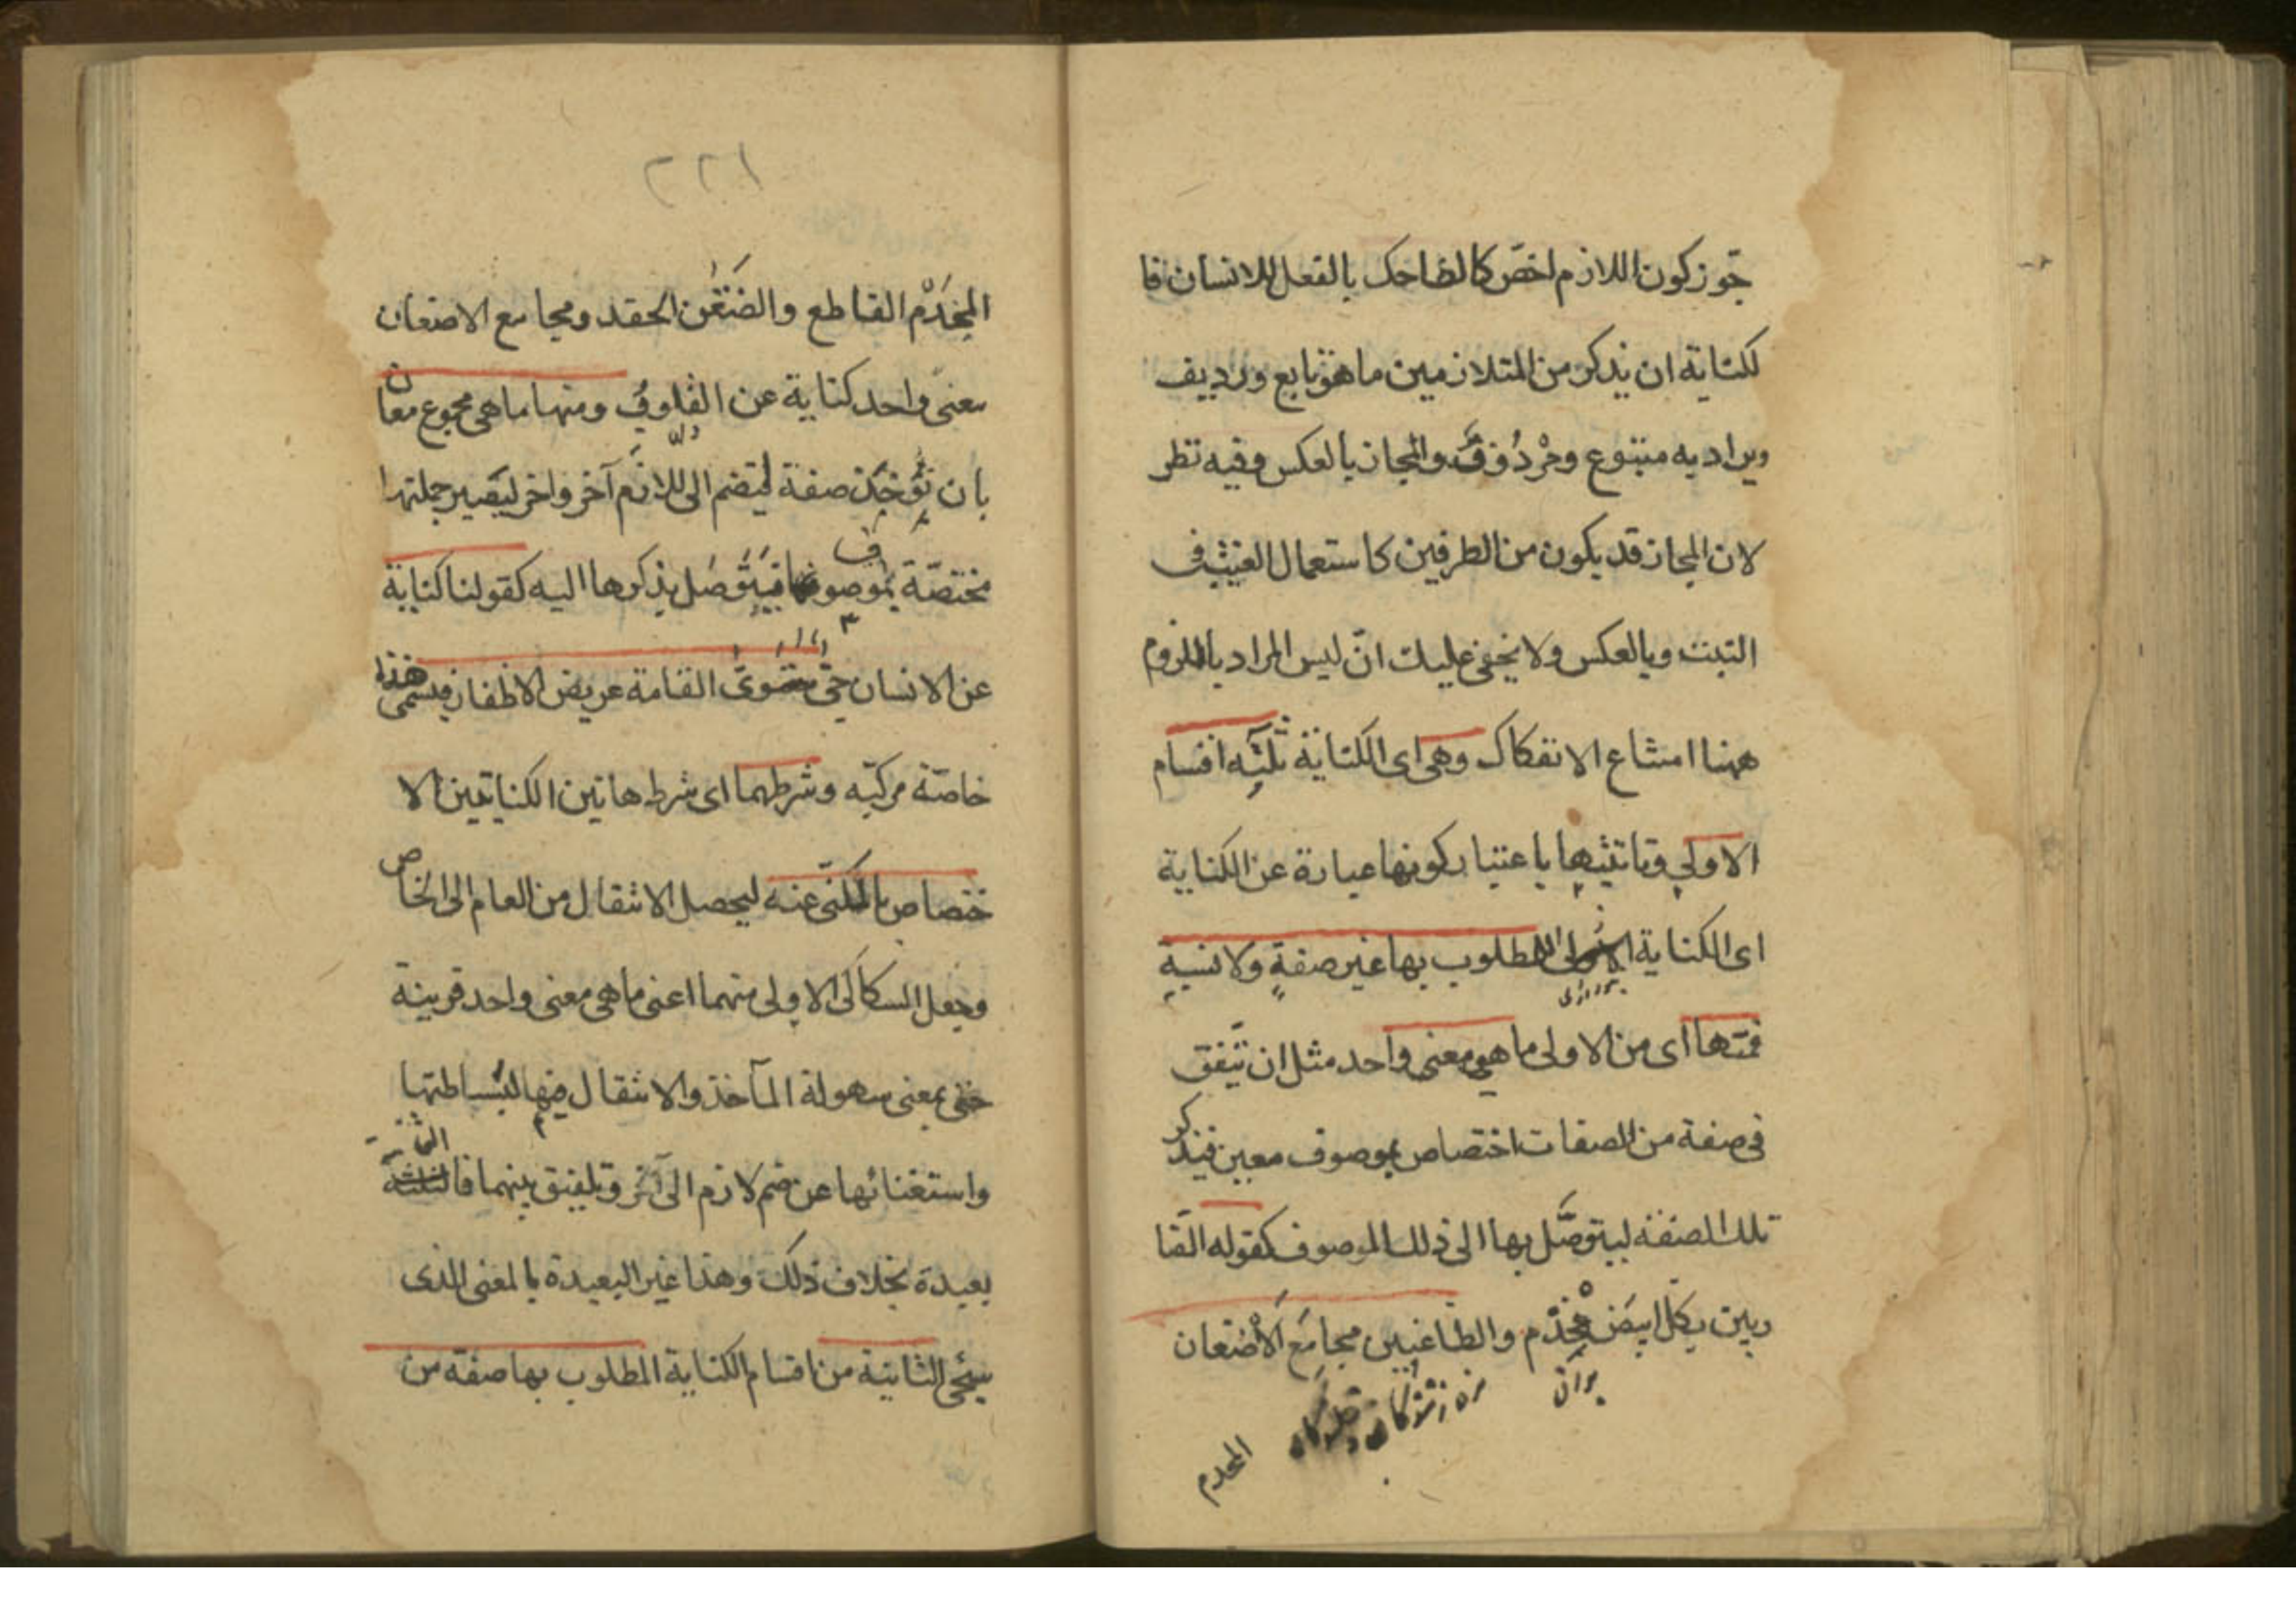 جوز كون اللازم اخصّ كالضاحك بالفعل للانسان فا
لكناية ان يذكر من المتلازمين ما هو تابع ورديف
ويراد به متبوع ومردوف والمجاز بالعكس وفيه نظر
لان المجاز قد يكون من الطرفين كاستعمال الغيث في
النبت وبالعكس ولا يخفى عليك انّ ليس المراد باللزوم
ههنا امتناع الانفكاك وهى اى الكناية ثلثه اقسام
الاولى وتانيثها باعتبار كونها عبارة عن الكناية
اى الكناية الاولى المطلوب بها غير صفةٍ ولا نسبةٍ
فمنها اى من الاولى ما هي معنى واحد مثل ان تتفق
فى صفة من الصفات اختصاص بموصوف معين فيذكر
تلك الصفة ليتوصّل بها الى ذلك الموصوف كقوله الضا
ربين بكل ابيض مخذم والطاعنين مجامع الاضغان
المخذم
٢٢١
المخذم القاطع والضغن الحقد ومجامع الاضغان
معنى واحد كناية عن القلوب ومنها ما هى مجموع معان
بان تؤخذ صفة ليضم الى لازم آخر واخر ليصير جملتها
مختصّة بموصوف فيتوصل بذكرها اليه كقولنا كناية
عن الانسان حىّ مستوى القامة عريض الاظفار ويسمى هذا
خاصّة مركبّه وشرطهما اى شرط هاتين الكنايتين الا
ختصاص بالمكنّى عنه ليحصل الانتقال من العام الى الخاص
وجعل السكاكى الاولى منهما اعنى ما هى معنى واحد قريبة
بمعنى سهولة المآخذ والانتقال فيها لبساطتها
واستغنائها عن ضم لازم الى آخر وتلفيق بينهما فالثانية
بعيدة بخلاف ذلك وهذا غير البعيدة بالمعنى الذى
سيجئ الثانية من اقسام الكناية المطلوب بها صفة من